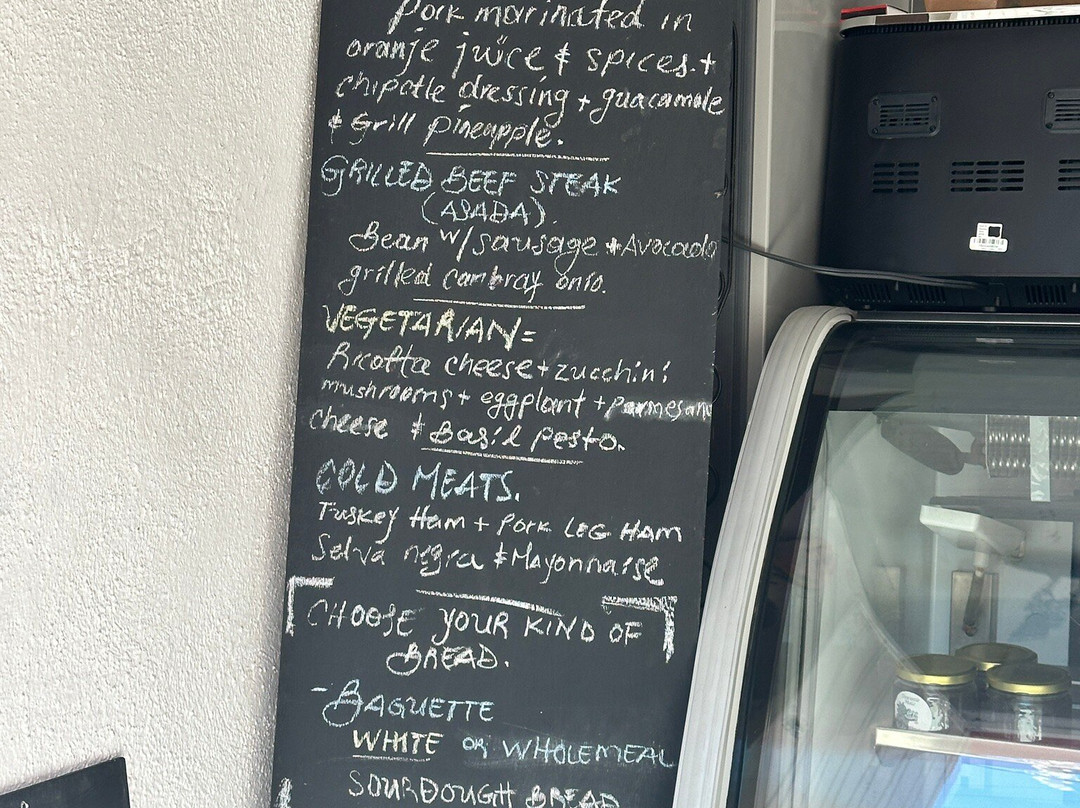 Pork marinated in
oranje juice & spices. +
chipotle dressing + guacamole
& Grill pineapple.
GRILLED BEEF STEAK
(ASADA).
Bean w/ sausage + Avocado
grilled cambray onio.
VEGETARIAN=
Ricotta cheese + zucchini
mushrooms + eggplant + parmesan
cheese & Basil pesto.
COLD MEATS.
Tuskey Ham + Pork LEG HAM
Selva negra & Mayonnaise
CHOOSE YOUR KIND OF
BREAD.
- BAGUETTE
WHITE OR WHOLEMEAL
SOURDOUGH BREAD